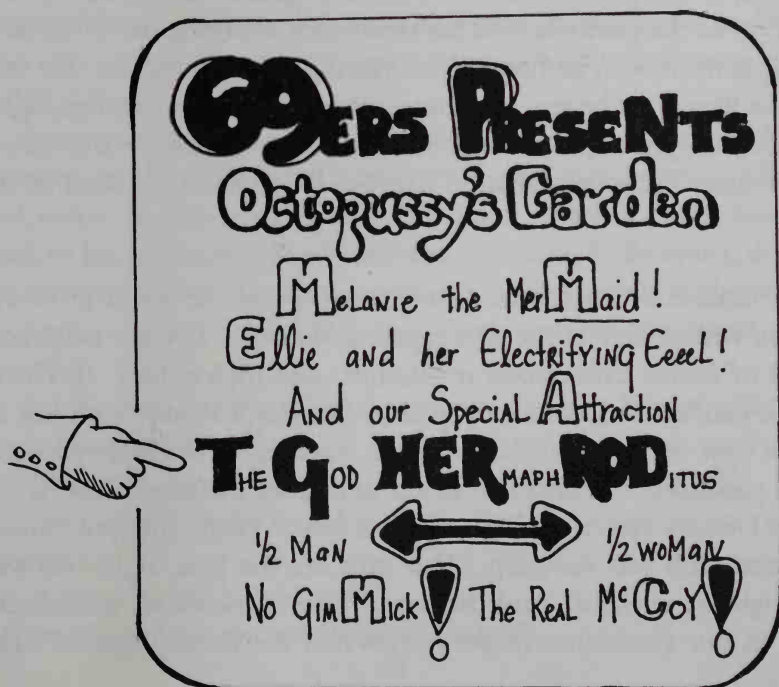 69ERS PRESENTS
Octopussy's Garden
Melanie the MerMaid!
Ellie and her Electrifying EeeeL!
And our Special Attraction
THE GOD HERMAPHRODITUS
½ Man ½ woMan
No GimMick! The Real McCoy!